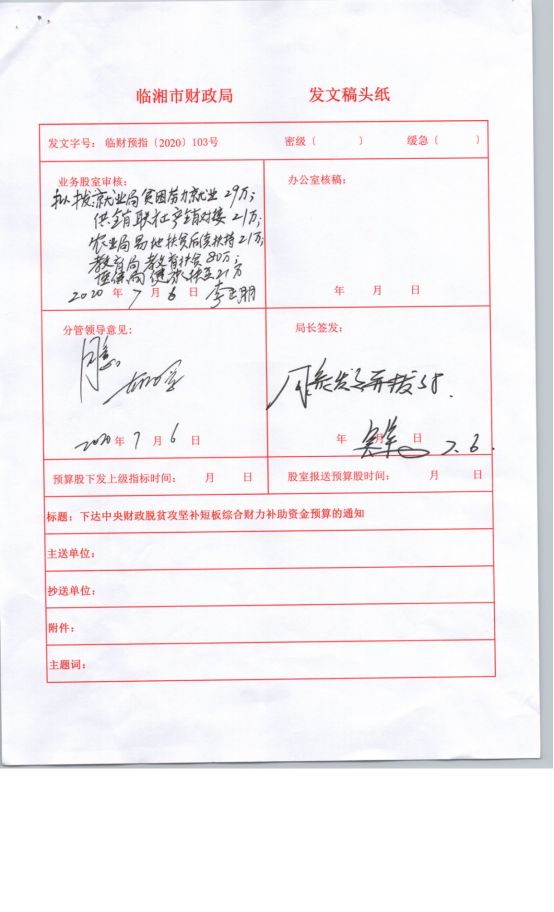 临湘市财政局 发文稿头纸
发文字号：临财预指〔2020〕103号 密级〔 〕 缓急〔 〕
业务股室审核：
拟拨就业局贫困劳力就业29万；
供销联社产销对接21万；
农业局易地扶贫后续扶持21万；
教育局教育扶贫80万；
医保局健康扶贫21万
2020年7月6日
办公室核稿：
年 月 日
分管领导意见：
同意。
2020年7月6日
局长签发：
同意发文并拨付.
年 月 日 7.6.
预算股下发上级指标时间： 月 日
股室报送预算股时间： 月 日
标题：下达中央财政脱贫攻坚补短板综合财力补助资金预算的通知
主送单位：
抄送单位：
附件：
主题词：